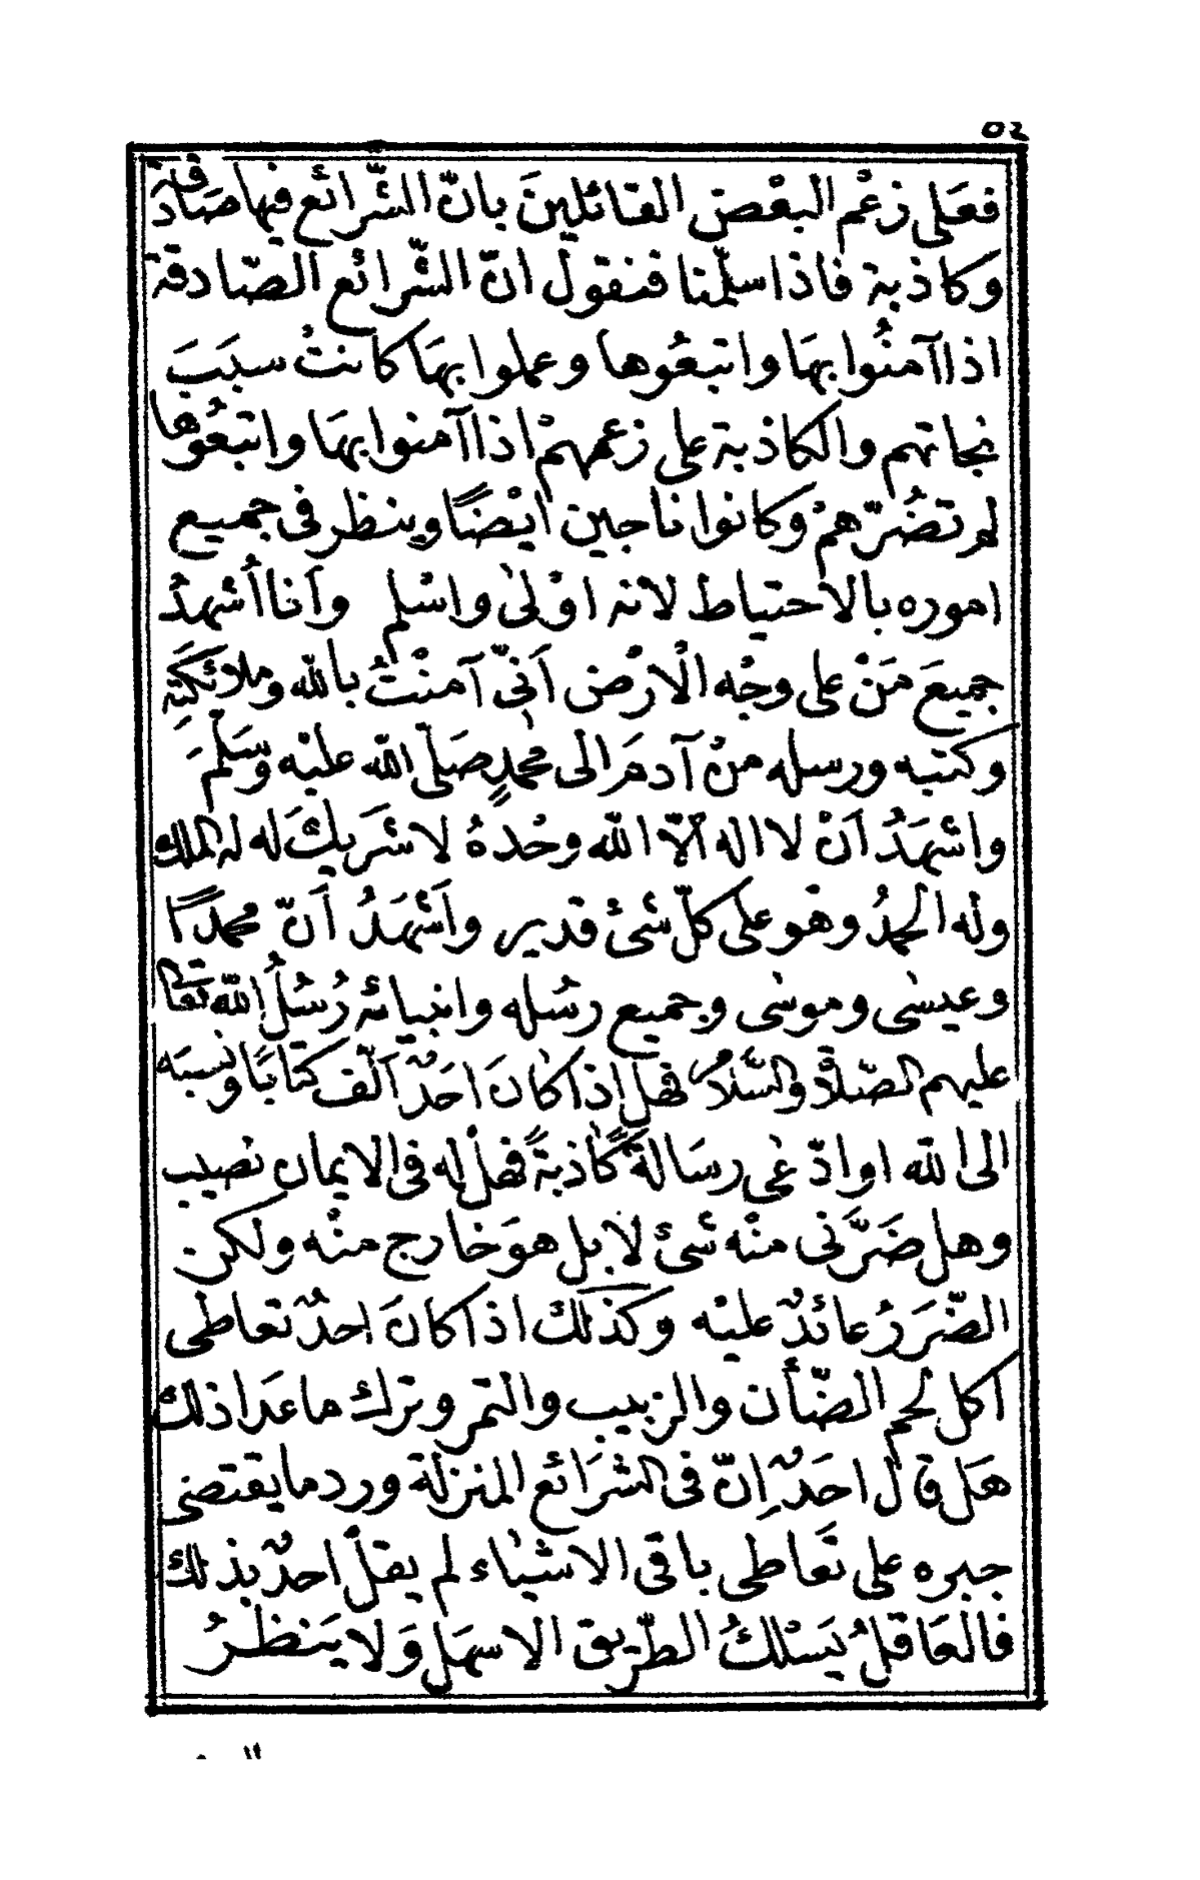 ٥٢
فعَلى زعْم البعْض القائلينَ بانّ الشّرائع فيها صَادقة
وكاذبة فاذا سلّمنا فنقول انّ الشّرائع الصّادقة
اذا آمنُوا بهَا واتبعُوها وعملوا بهَا كانتْ سبَبَ
نجاتهم والكاذبة على زعمهمْ اذا آمنوا بهَا واتبعُوها
لم تضُرّهمْ وكانوا ناجين ايْضًا وينظر فى جميع
اموره بالاحتياط لانه اوْلىٰ واسْلم وأنا أُشهدُ
جميعَ مَنْ على وجْه الْارْض اَنّى آمنْتُ بالله وملائكَتِه
وكتبه ورسله منْ آدمَ الى محمدٍ صَلّى الله عليْه وسَلّمَ
واشهَدُ اَنْ لا اله الّا الله وحْدهُ لا شَريكَ له له الملك
وله الحمدُ وهْو على كلّ شىْ قدير واَشهَدُ اَنّ محمدًا
وعيسٰى وموسٰى وجميع رسُله وانبيائه رُسُلُ الله تعَالى
عليهم الصّلاة والسّلامُ فهل إذا كانَ احَدٌ اَلّف كتابًا ونسبَه
الى الله او ادّعٰى رسَالةً كاذبةً فهلْ له فى الايمان نصيب
وهل ضَرَّنى منْه شىْ لا بل هوَ خارج منْه ولكن
الضّرَرُ عائدٌ عليْه وكذلك اذا كانَ احدٌ تعاطى
اكل لحم الضّأن والزبيب والتمر وترك ما عدَا ذلك
هَل قال احَدٌ إنّ فى الشرَائع المنزلة ورد ما يقتضى
جبره على تَعاطى باقى الاشياء لم يقلْ احدٌ بذلك
فالعَاقلُ يَسْلكُ الطّريق الاسهَل وَلا يَنظرُ